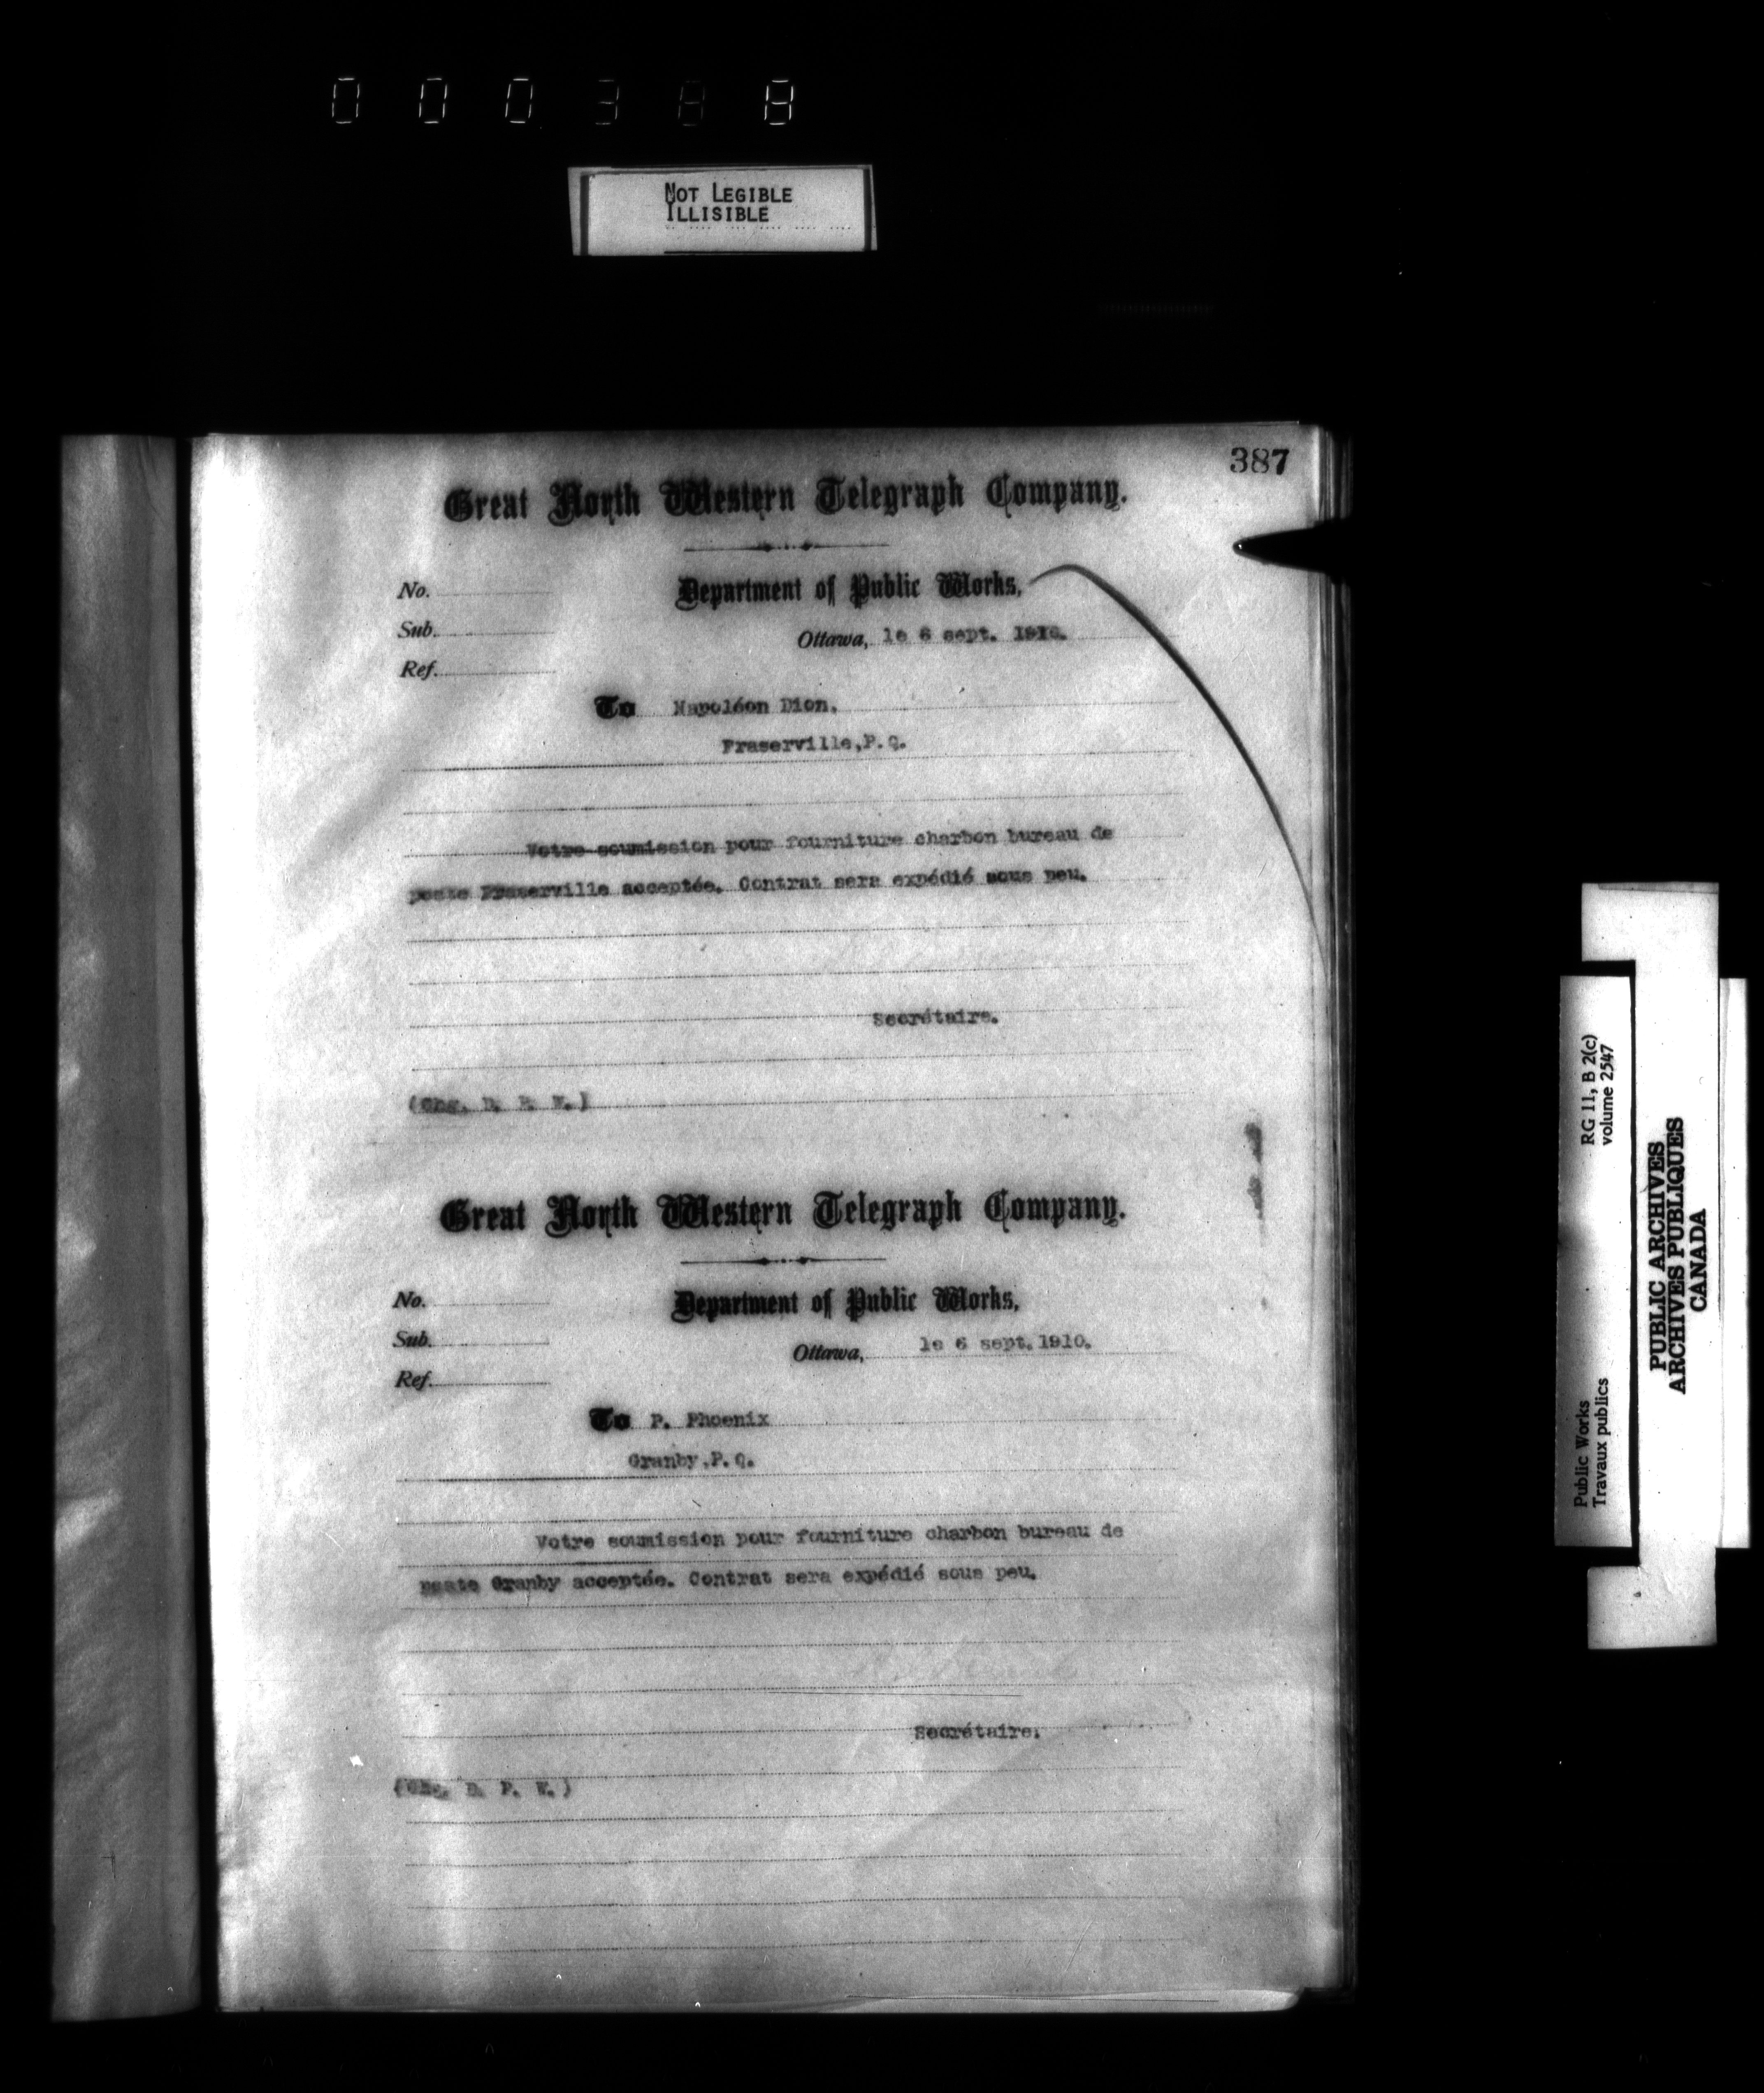 000388
NOT LEGIBLE
ILLISIBLE
387
Great North Western Telegraph Company.
No.
Department of Public Works,
Sub.
Ottawa, le 6 sept. 1910.
Ref.
To Napoléon Dion.
Fraserville, P. Q.
Votre soumission pour fourniture charbon bureau de
poste Fraserville acceptée. Contrat sera expédié sous peu.
Secrétaire.
(Chg. D. P. W.)
Great North Western Telegraph Company.
No.
Department of Public Works,
Sub.
Ottawa, le 6 sept. 1910.
Ref.
To P. Phoenix
Granby, P. Q.
Votre soumission pour fourniture charbon bureau de
poste Granby acceptée. Contrat sera expédié sous peu.
Secrétaire.
(Chg. D. P. W.)
Public Works RG 11, B 2(c)
Travaux publics volume 2547
PUBLIC ARCHIVES
ARCHIVES PUBLIQUES
CANADA